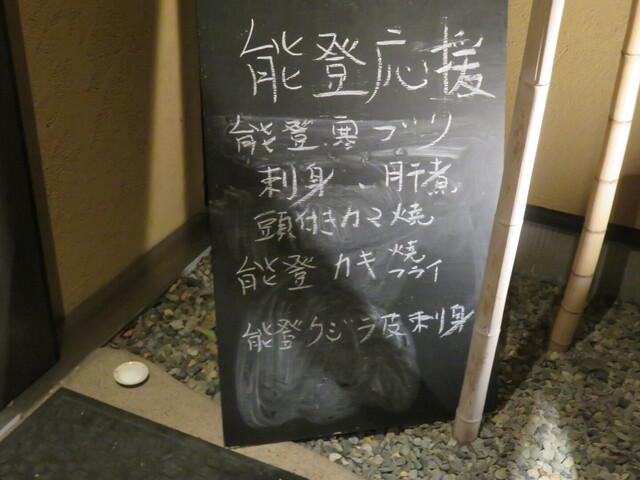 能登応援
能登寒ブリ
刺身、肝煮
頭付きカマ焼
能登 カキ 焼
フライ
能登クジラ皮刺身